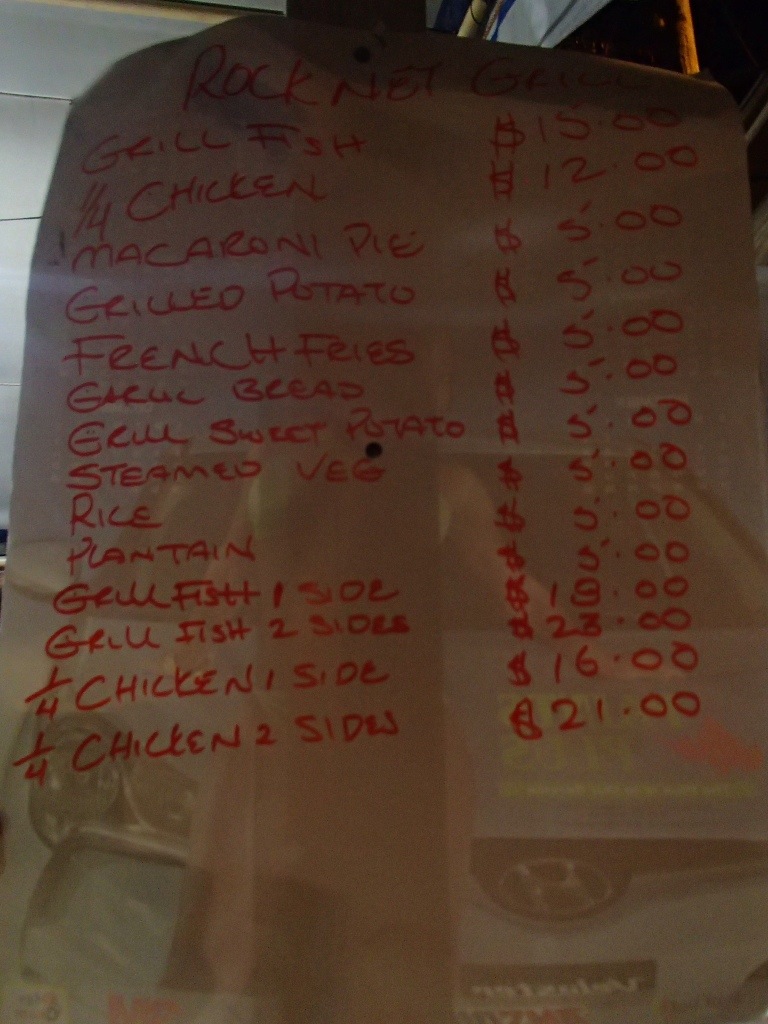 ROCKNET GRILL
GRILL FISH $15.00
1/4 CHICKEN $12.00
MACARONI PIE $5.00
GRILLED POTATO $5.00
FRENCH FRIES $5.00
GARLIC BREAD $5.00
GRILL SWEET POTATO $5.00
STEAMED VEG $5.00
RICE $5.00
PLANTAIN $5.00
GRILL FISH 1 SIDE $18.00
GRILL FISH 2 SIDES $23.00
1/4 CHICKEN 1 SIDE $16.00
1/4 CHICKEN 2 SIDES $21.00